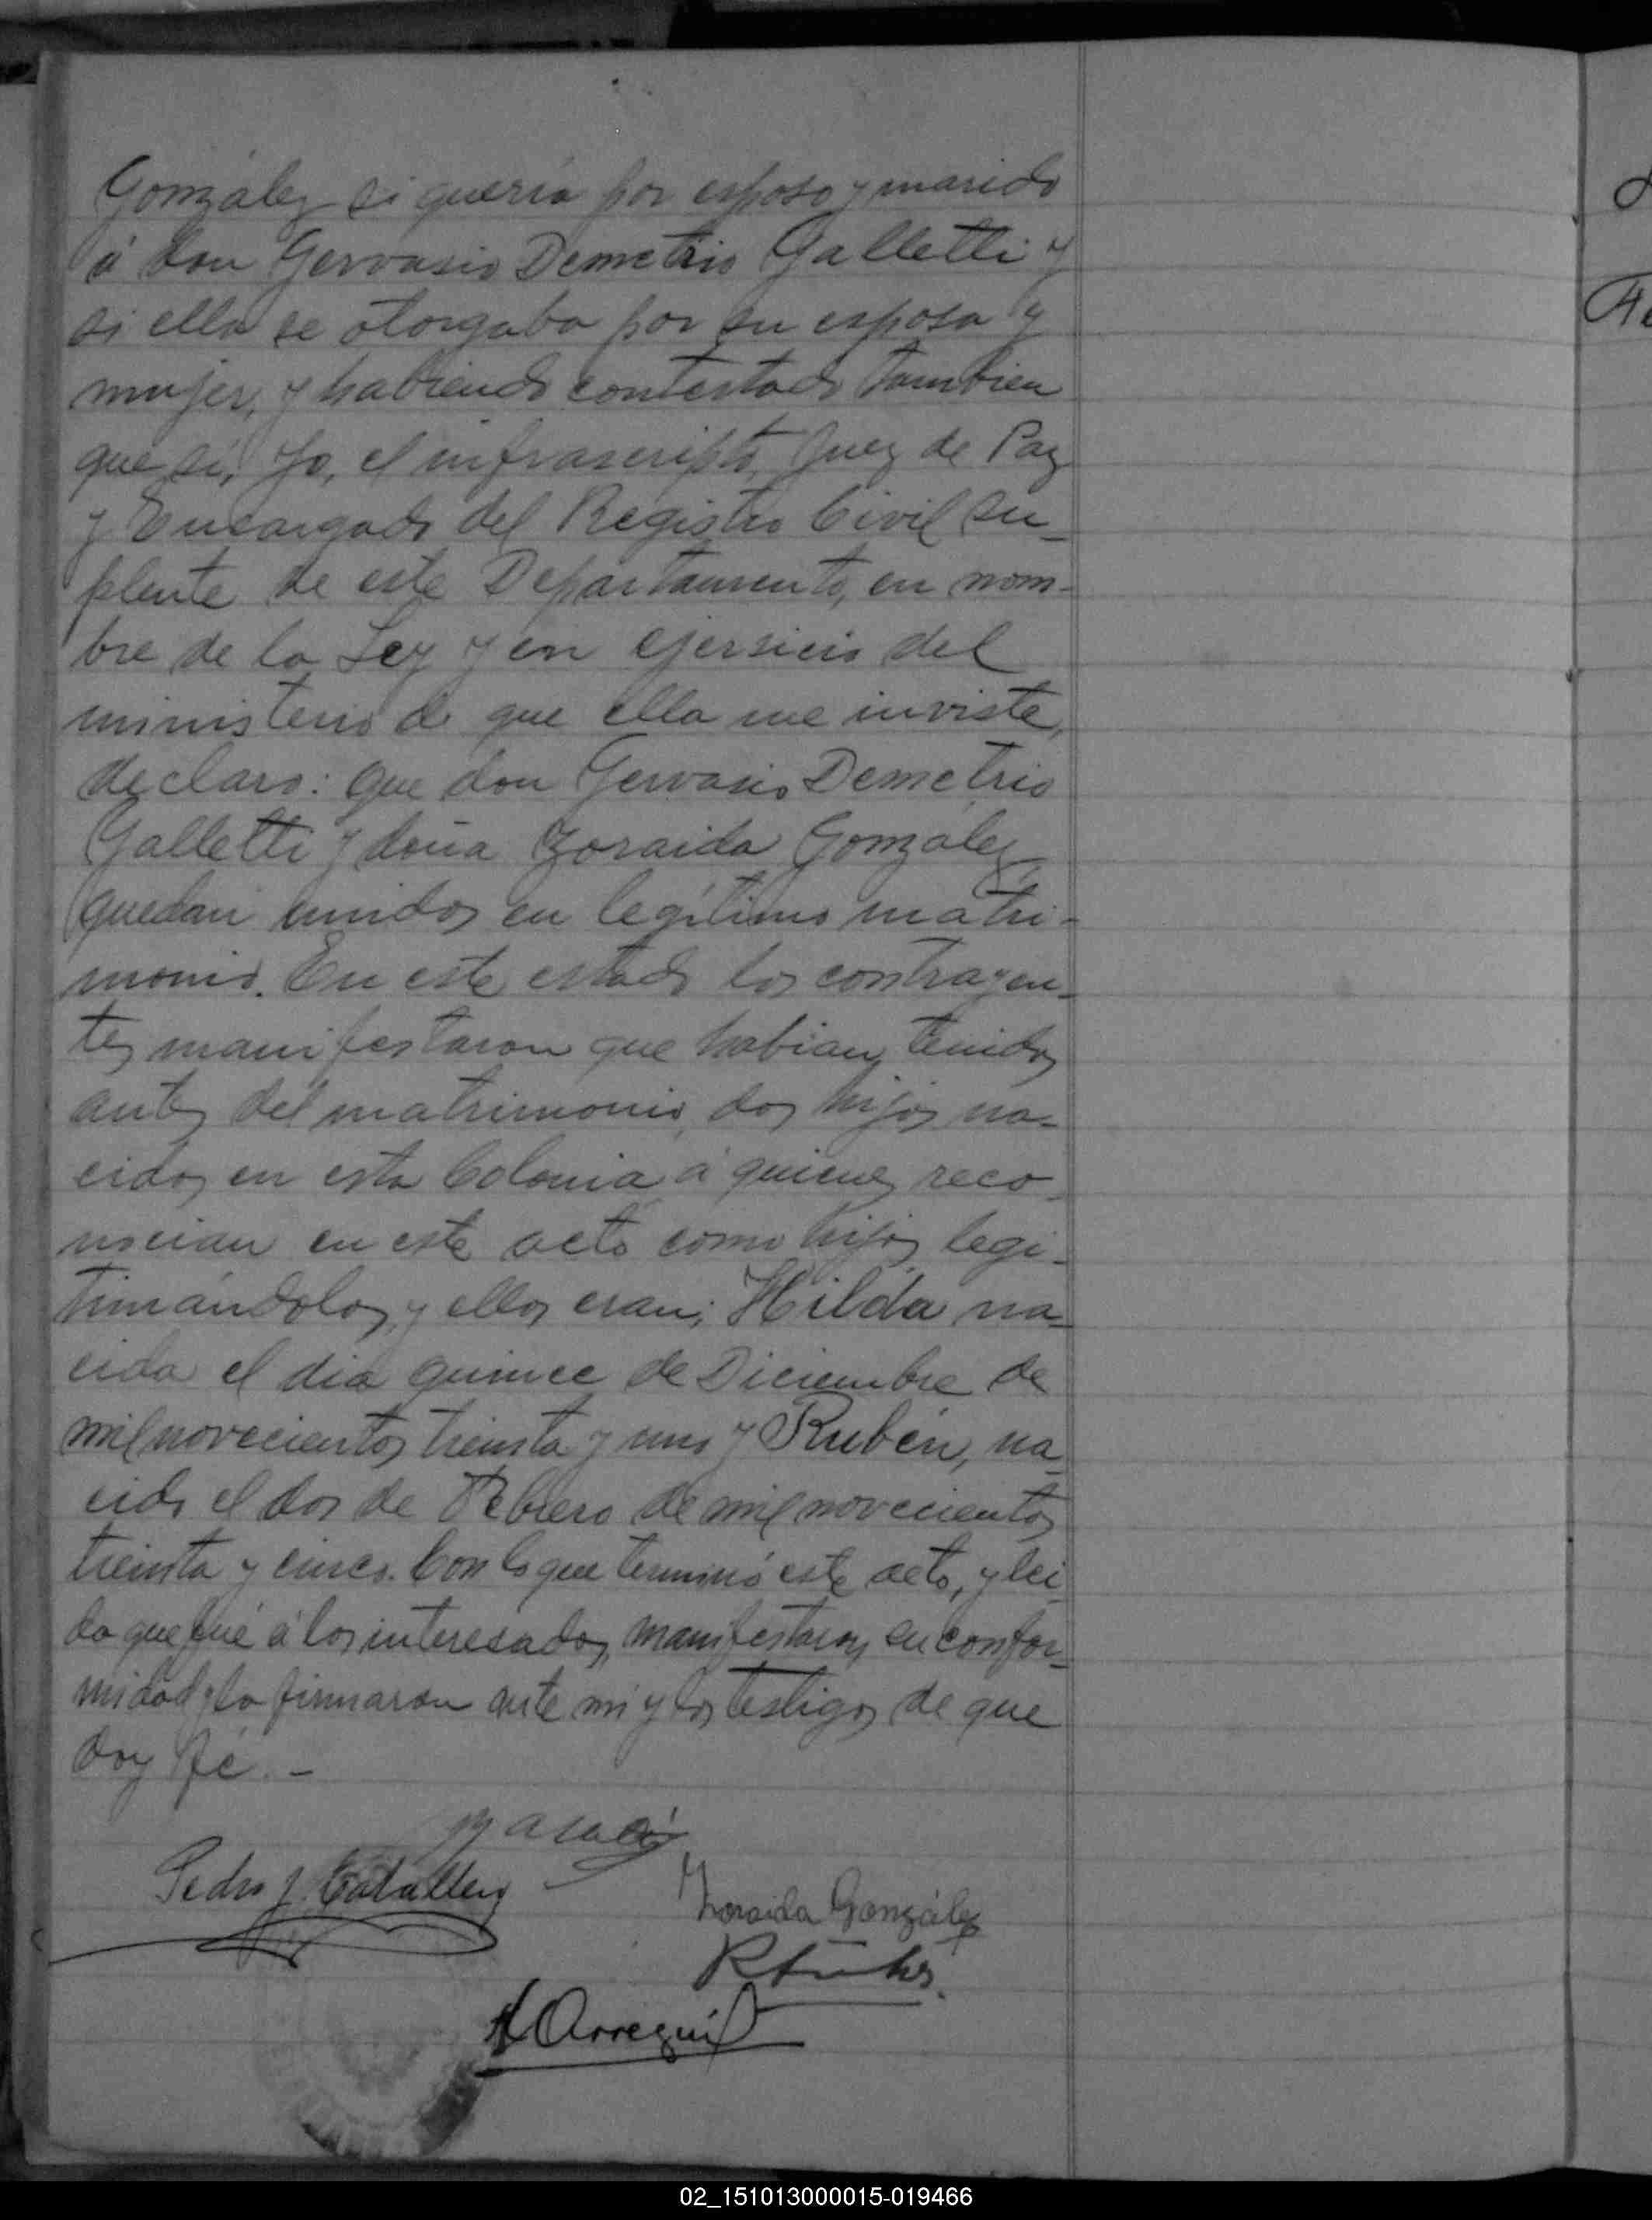 González si quería por esposo y marido
á don Gervasio Demetrio Galletti y
si ella se otorgaba por su esposa y
mujer, y habiendo contestado tambien
que si, Yo, el infrascripto, Juez de Paz
y Encargado del Registro Civil Su-
plente de este Departamento, en nom-
bre de la Ley y en ejersicio del
ministerio de que ella me inviste,
declaro: que don Gervasio Demetrio
Galletti y doña Zoraida González
quedan unidos en legítimo matri-
monio. En este estado los contrayen-
tes manifestaron que habian tenido,
antes del matrimonio, dos hijos na-
cidos en esta Colonia á quienes reco-
nocian en este acto como hijos legi-
timándolos, y ellos eran; Hilda na-
cida el dia quince de Diciembre de
mil novecientos treinta y uno y Rubén, na-
cido el dos de Febrero de mil novecientos
treinta y cinco. Con lo que terminó este acto, y lei-
da que fué á los interesados, manifestaron su confor-
midad y la firmaron ante mi y los testigos de que
doy fé. -
Pedro J.
Zoraida González
A Arregui
02_151013000015-019466